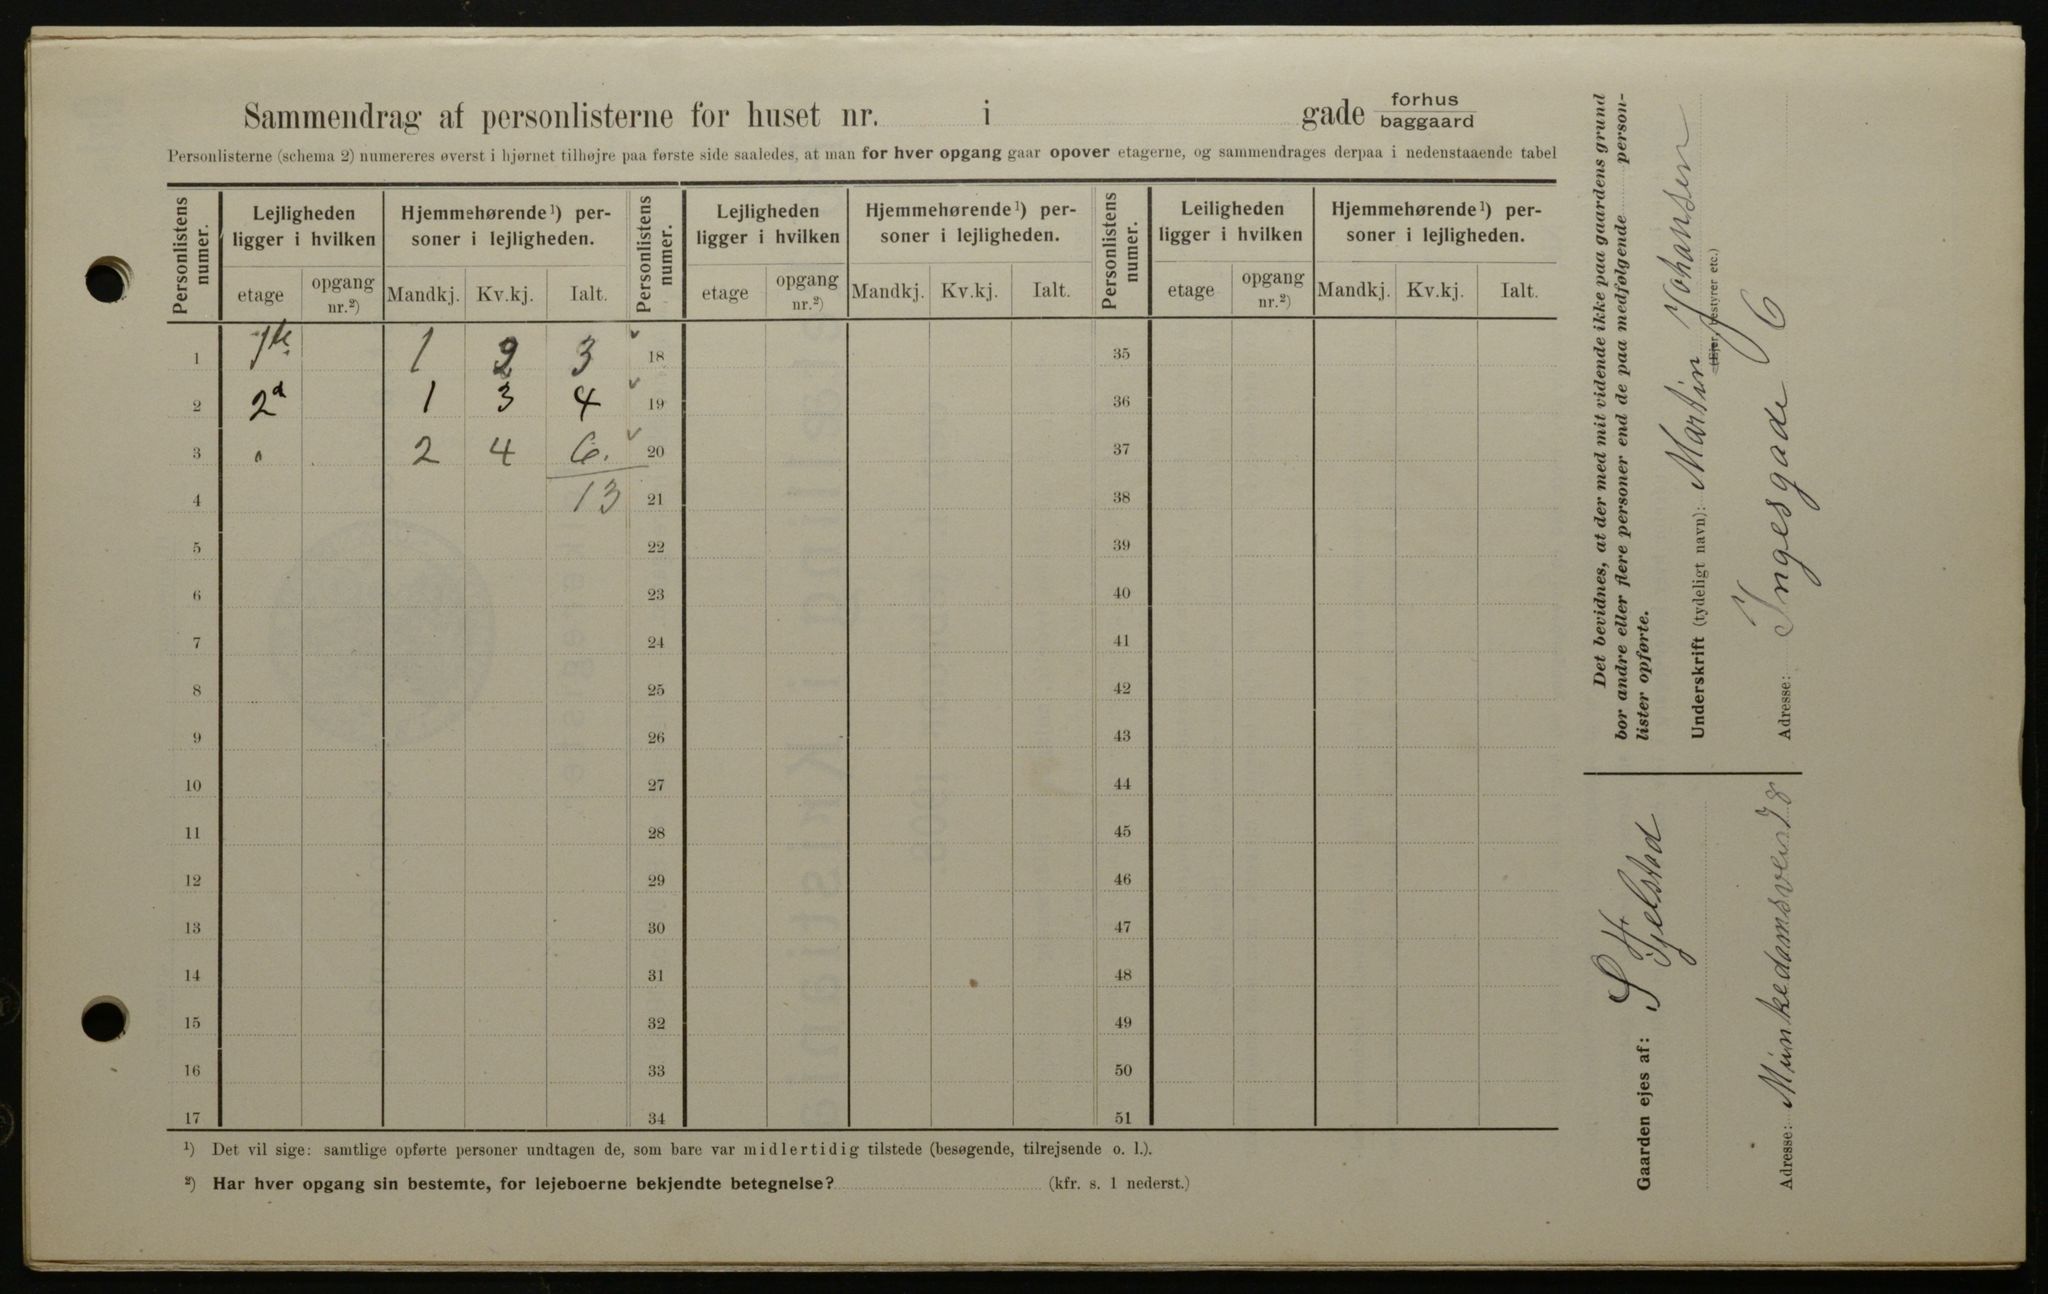 Sammendrag af personlisterne for huset nr. i gade forhus
baggaard
Personlisterne (schema 2) numereres øverst i hjørnet tilhøjre paa første side saaledes, at man for hver opgang gaar opover etagerne, og sammendrages derpaa i nedenstaaende tabel
Personlistens numer. Lejligheden ligger i hvilken Hjemmehørende ¹) personer i lejligheden. Personlistens numer. Lejligheden ligger i hvilken Hjemmehørende ¹) personer i lejligheden. Personlistens numer. Leiligheden ligger i hvilken Hjemmehørende ¹) personer i lejligheden.
etage opgang nr.²) Mandkj. Kv.kj. Ialt. etage opgang nr.²) Mandkj. Kv.kj. Ialt. etage opgang nr.²) Mandkj. Kv.kj. Ialt.
1 1ste 1 2 3 18 35
2 2d 1 3 4 19 36
3 " 2 4 6. 20 37
4 13 21 38
5 22 39
6 23 40
7 24 41
8 25 42
9 26 43
10 27 44
11 28 45
12 29 46
13 30 47
14 31 48
15 32 49
16 33 50
17 34 51
¹) Det vil sige: samtlige opførte personer undtagen de, som bare var midlertidig tilstede (besøgende, tilrejsende o. l.).
²) Har hver opgang sin bestemte, for lejeboerne bekjendte betegnelse? (kfr. s. 1 nederst.)
Det bevidnes, at der med mit vidende ikke paa gaardens grund
bor andre eller flere personer end de paa medfølgende person-
lister opførte.
Underskrift (tydeligt navn): Martin Johansen
(Ejer, bestyrer etc.)
Adresse: Ingesgade 6
Gaarden ejes af: S Hjelstad
Adresse: Munkedamsveien 78